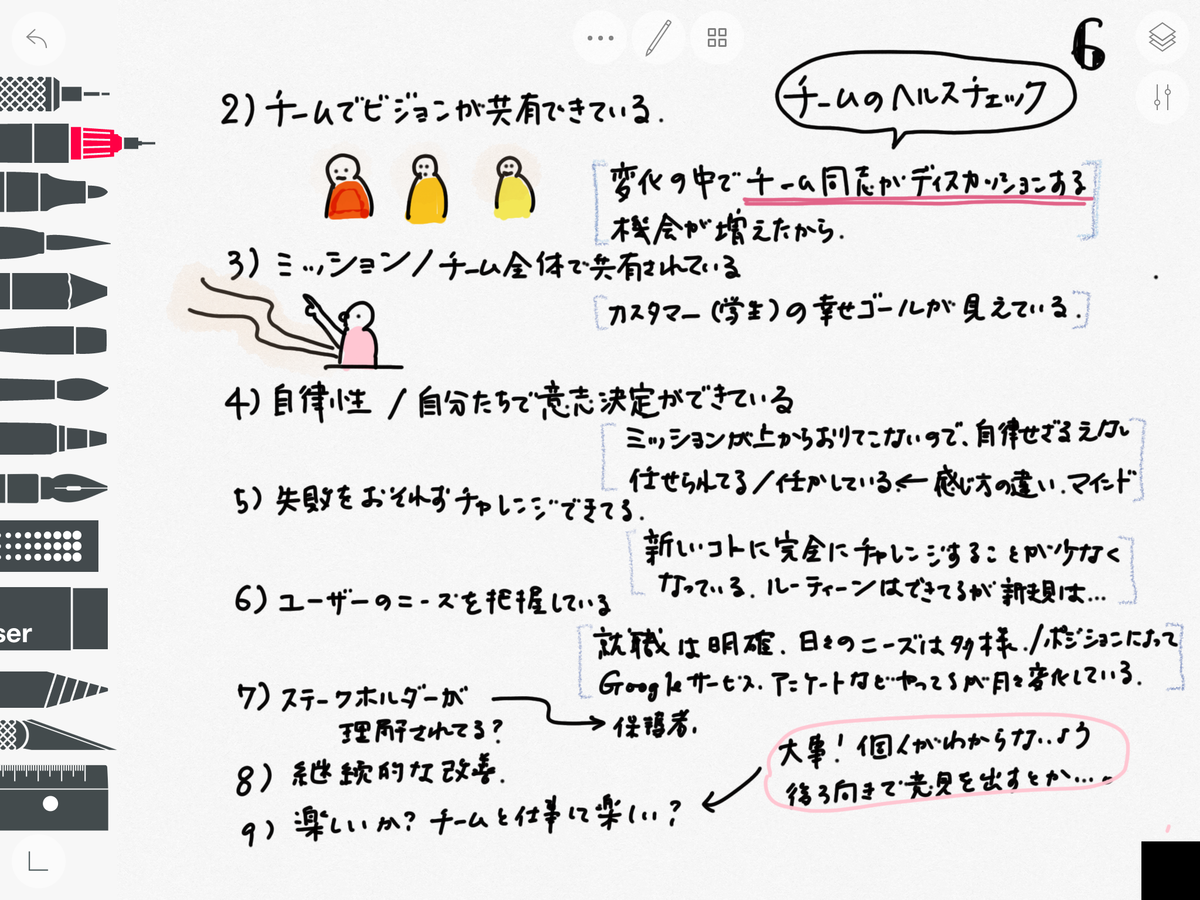 6
チームのヘルスチェック
2) チームでビジョンが共有できている.
変化の中でチーム同志がディスカッションする
機会が増えたから.
3) ミッション/チーム全体で共有されている
カスタマー(学生)の幸せゴールが見えている.
4) 自律性 / 自分たちで意志決定ができている
ミッションが上からおりてこないので、自律せざるえない
任せられてる/任かしている ← 感じ方の違い.マインド
5) 失敗をおそれずチャレンジできてる.
新しいコトに完全にチャレンジすることが少なく
なっている. ルーティーンはできてるが新規は...
6) ユーザーのニーズを把握している
就職は明確. 日々のニーズは多様./ポジションによって
Googleサービス. アンケートなどやってるが月々変化している.
7) ステークホルダーが
理解されてる? → 保護者.
大事! 個人がわからないよう
後ろ向きで意見を出すとか...
8) 継続的な改善.
9) 楽しいか? チームと仕事して楽しい?
ser